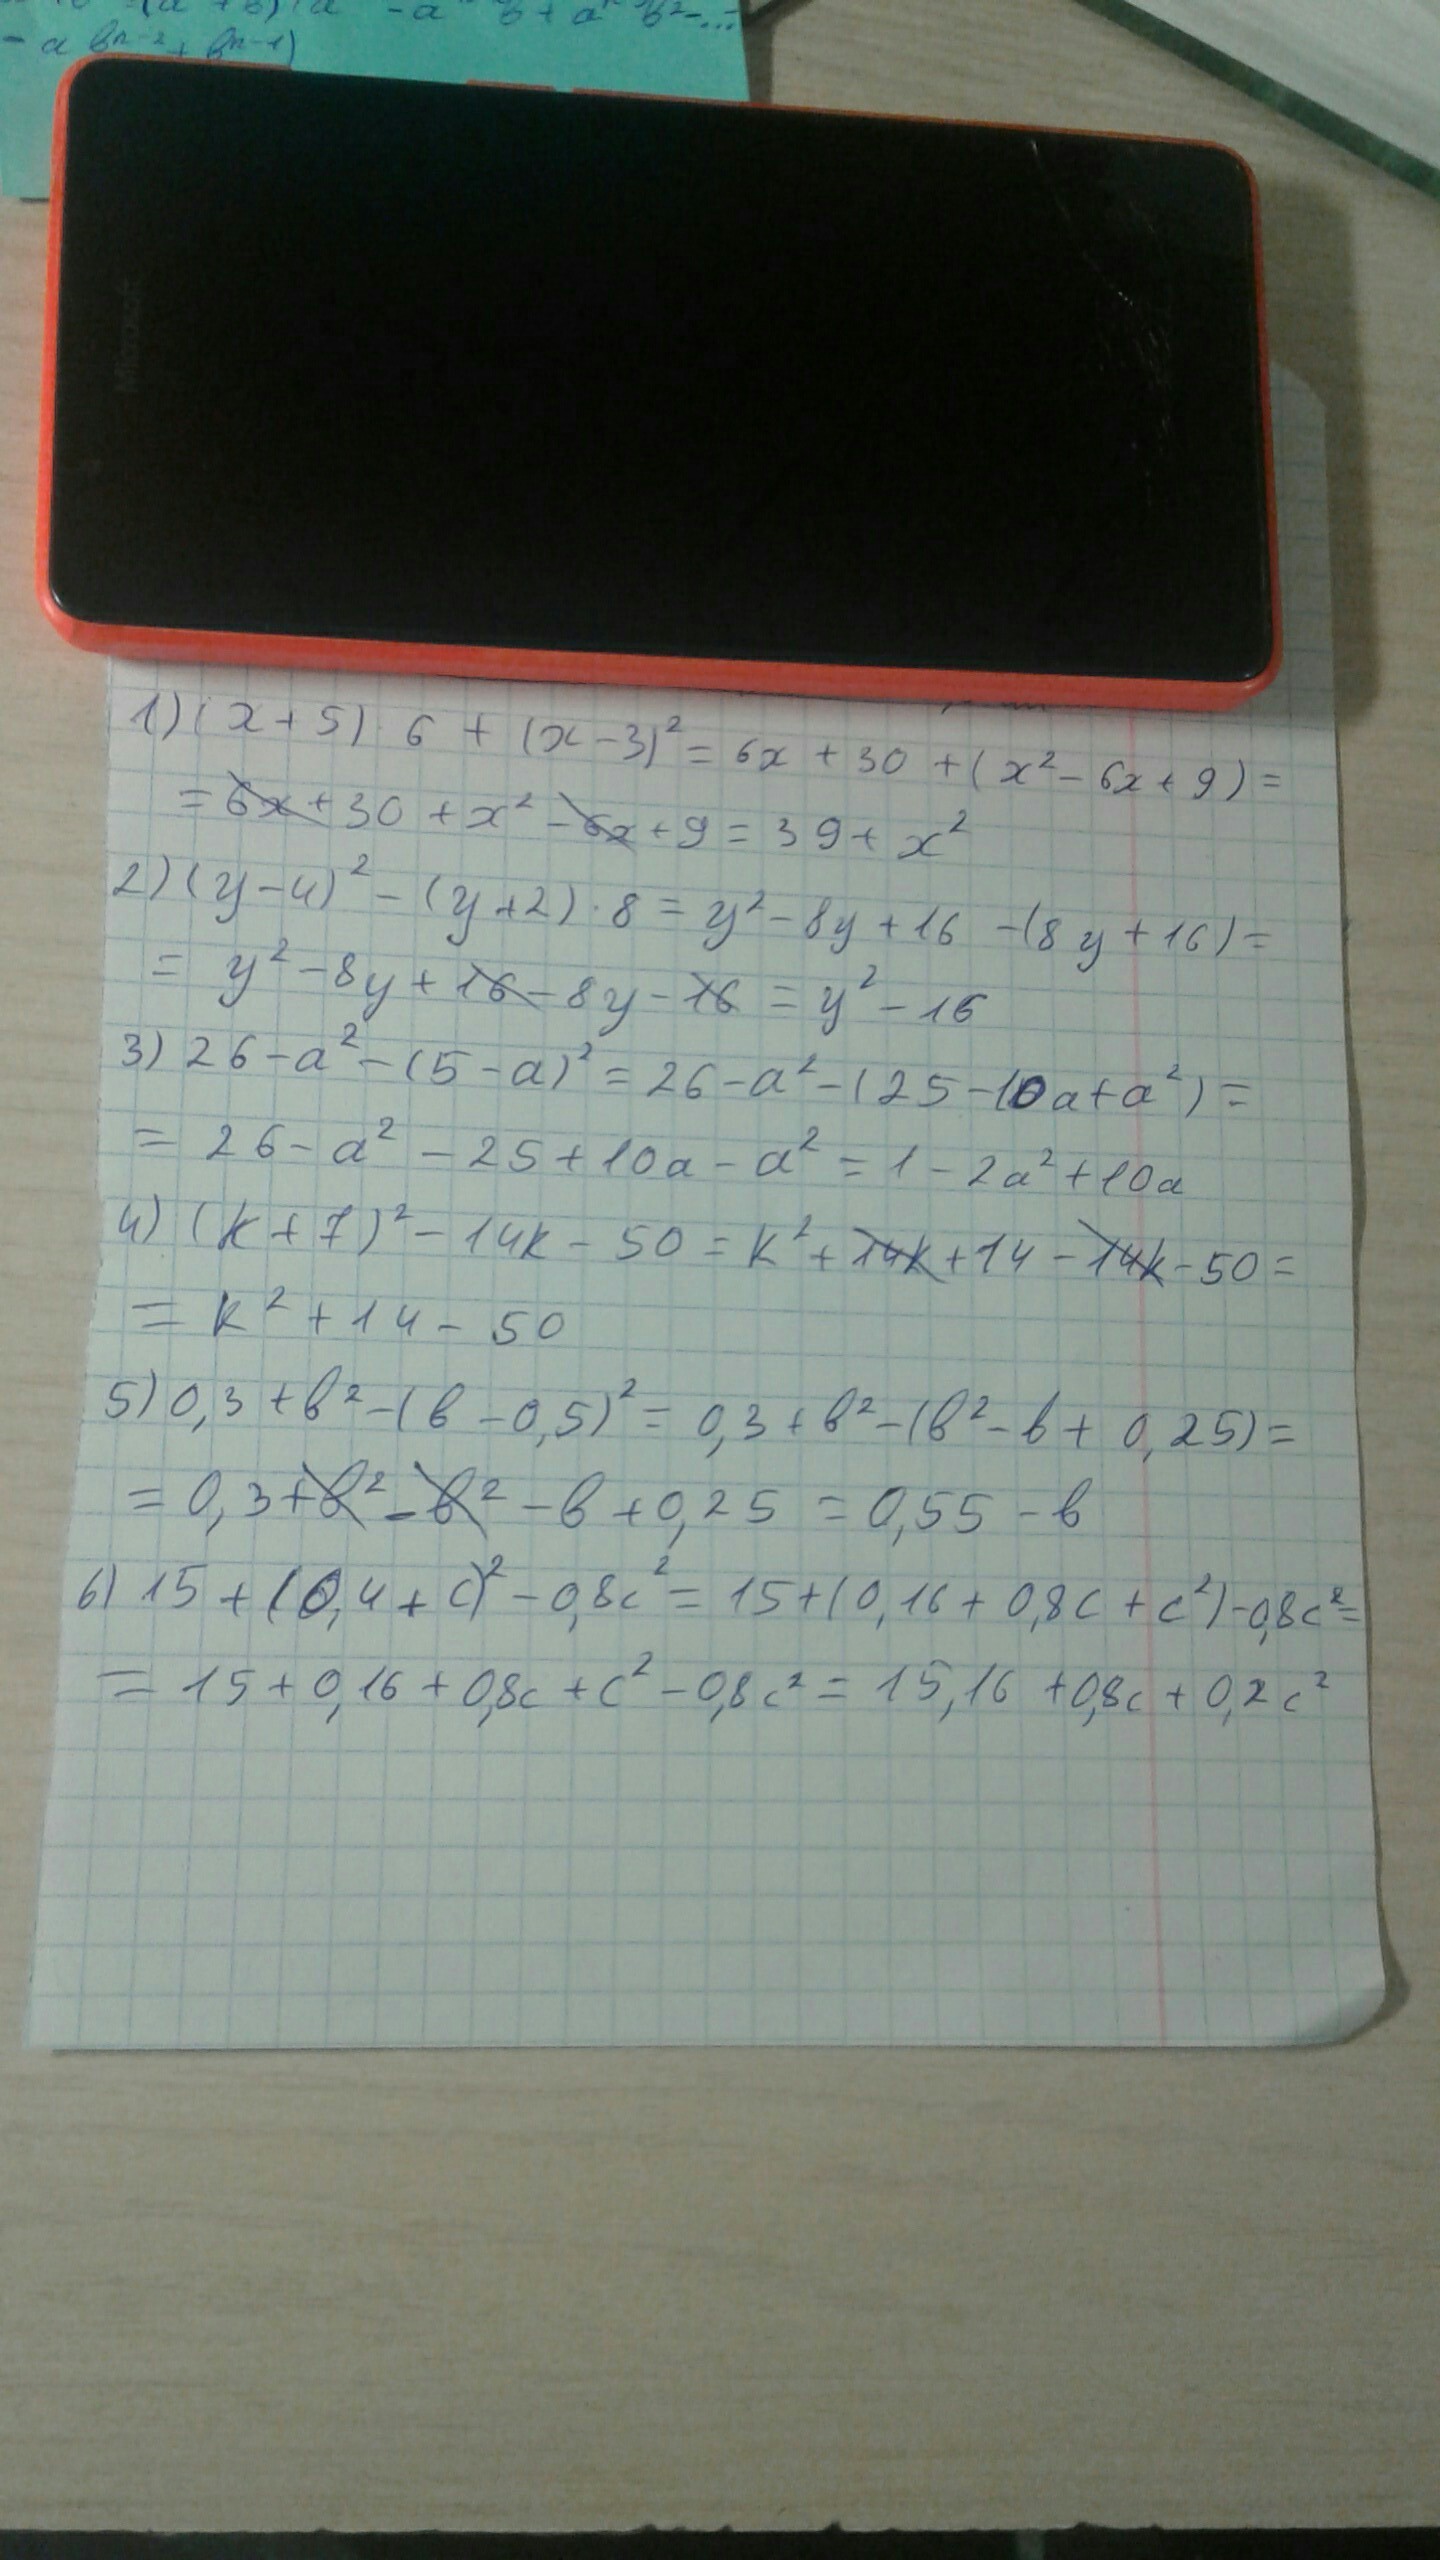 - a bⁿ⁻² + bⁿ⁻¹)
Microsoft
1) (x + 5) · 6 + (x - 3)² = 6x + 30 + (x² - 6x + 9) =
= 6x + 30 + x² - 6x + 9 = 39 + x²
2) (y - 4)² - (y + 2) · 8 = y² - 8y + 16 - (8y + 16) =
= y² - 8y + 16 - 8y - 16 = y² - 16
3) 26 - a² - (5 - a)² = 26 - a² - (25 - 10a + a²) =
= 26 - a² - 25 + 10a - a² = 1 - 2a² + 10a
4) (k + 7)² - 14k - 50 = k² + 14k + 14 - 14k - 50 =
= k² + 14 - 50
5) 0,3 + b² - (b - 0,5)² = 0,3 + b² - (b² - b + 0,25) =
= 0,3 + b² - b² - b + 0,25 = 0,55 - b
6) 15 + (0,4 + c)² - 0,8c² = 15 + (0,16 + 0,8c + c²) - 0,8c² =
= 15 + 0,16 + 0,8c + c² - 0,8c² = 15,16 + 0,8c + 0,2c²